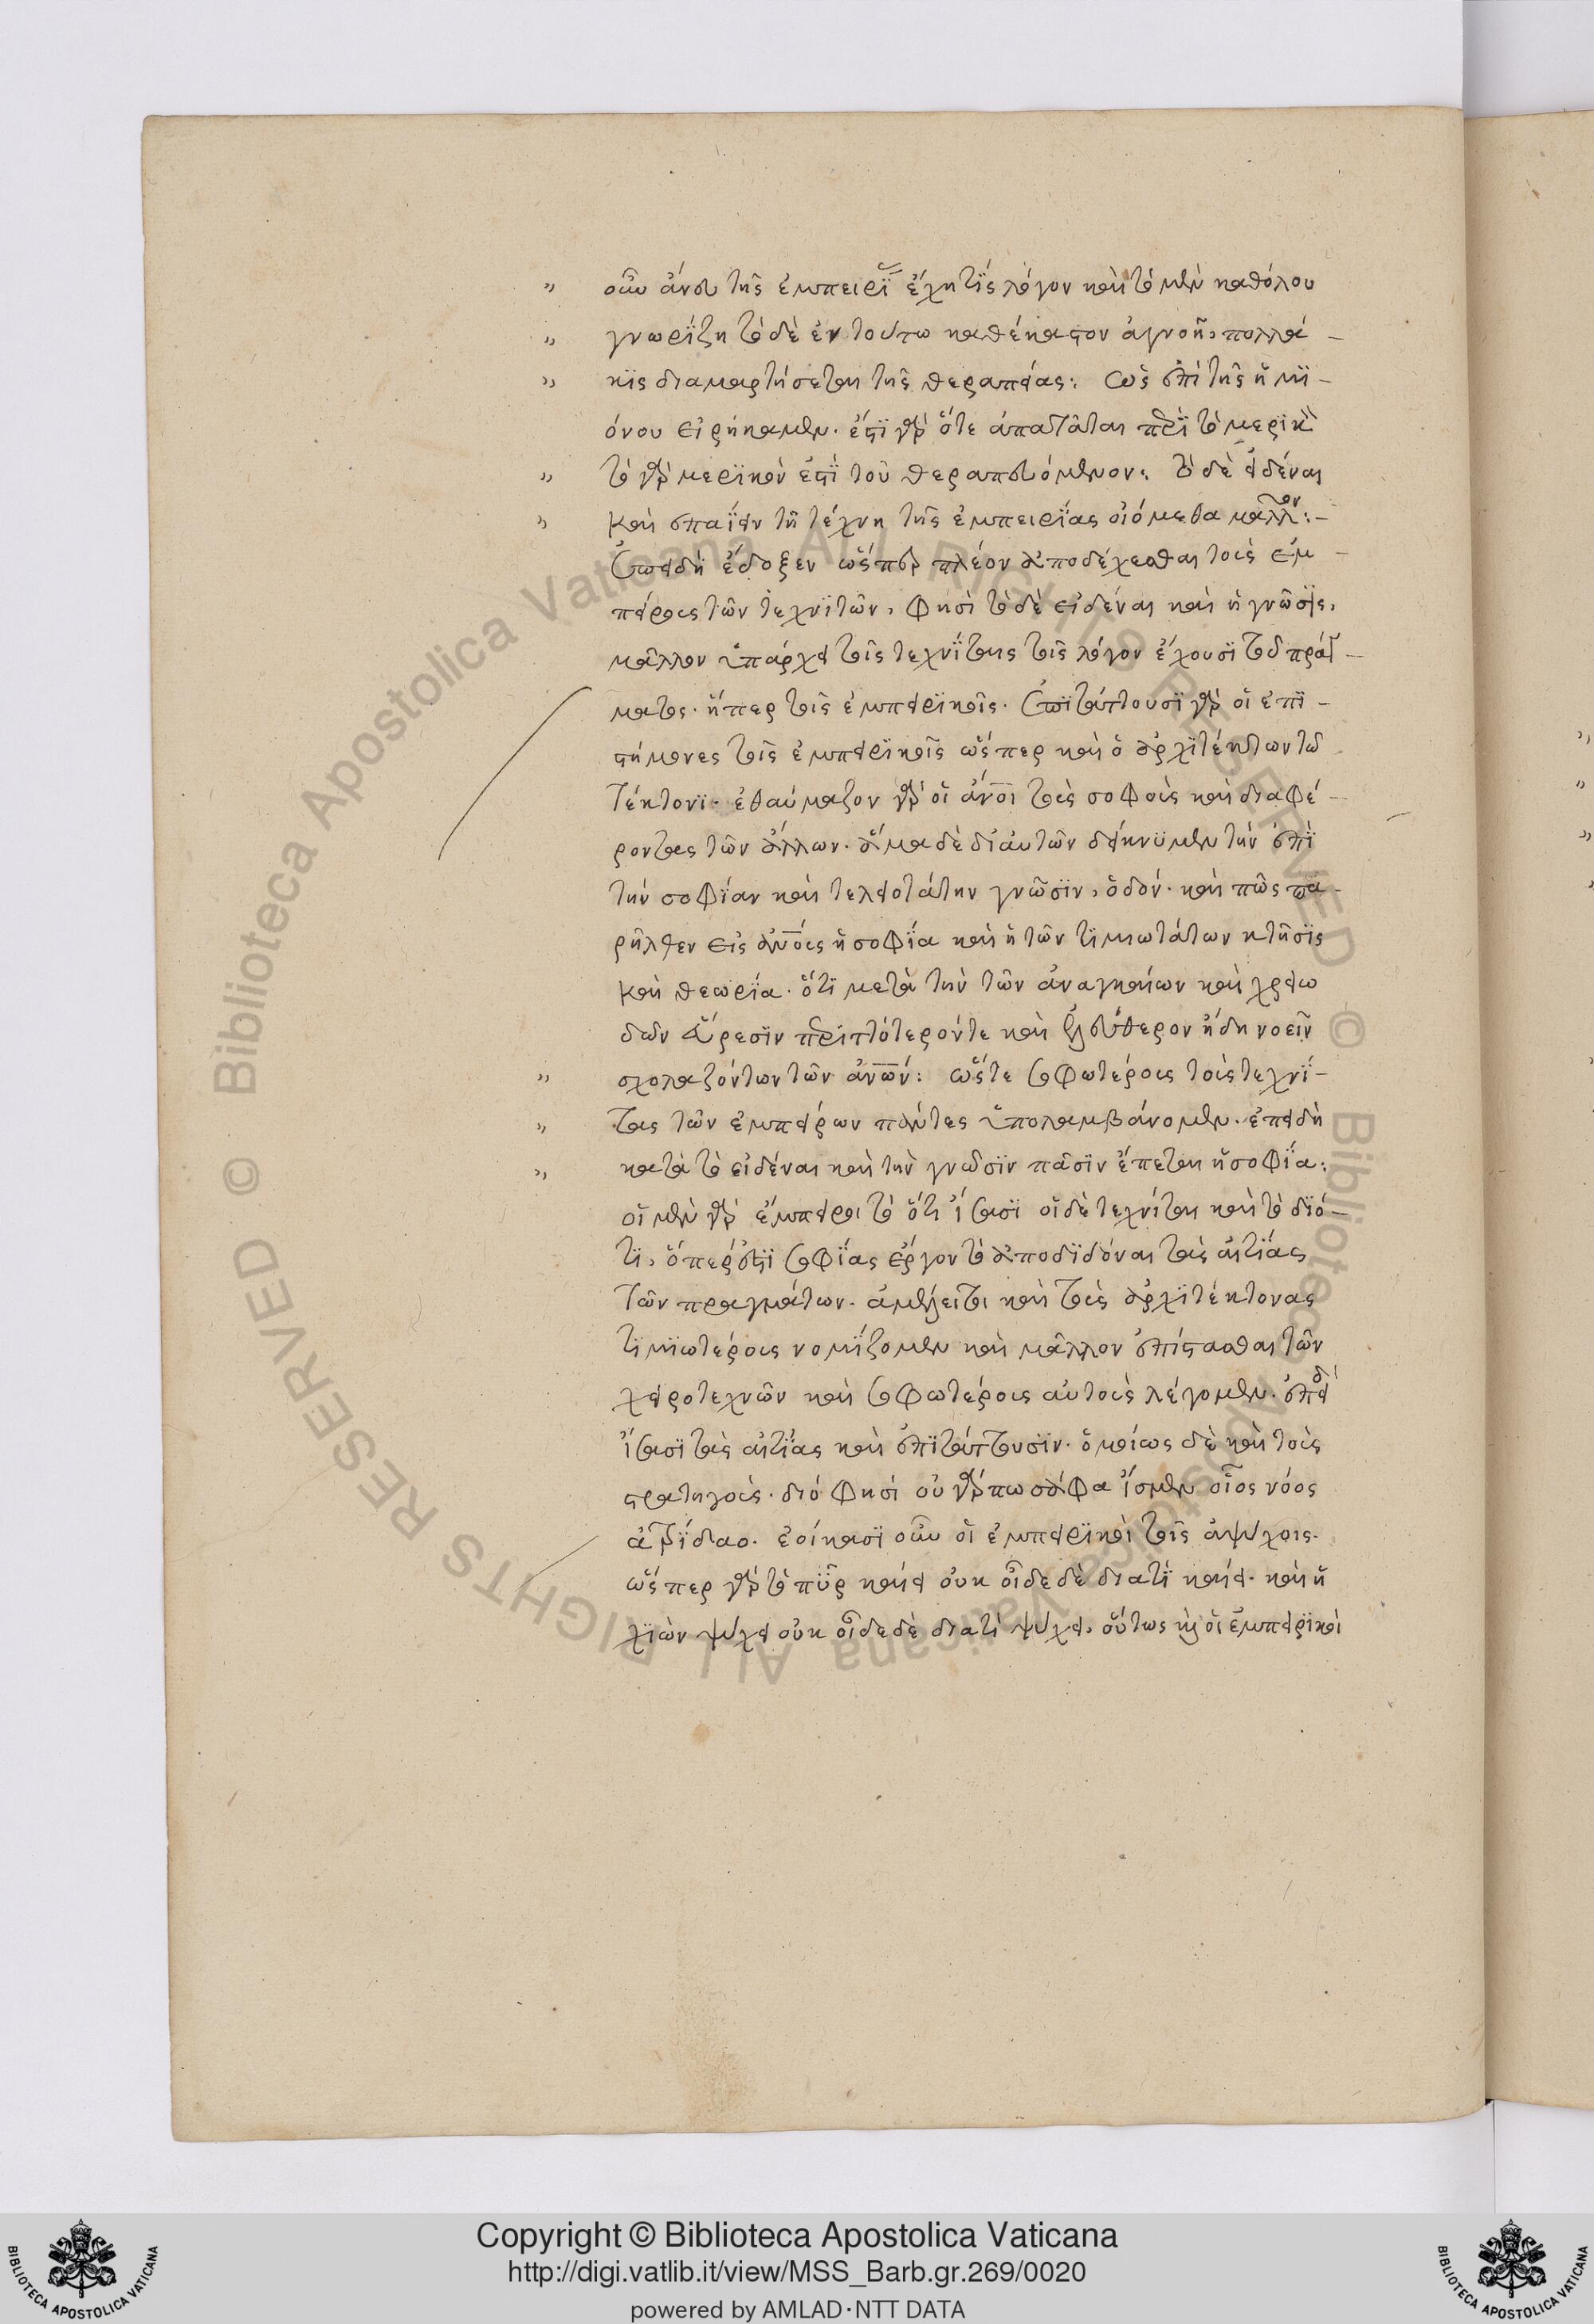 οὖν ἄνευ τῆς ἐμπειρίας ἔχη τὶς λόγον καὶ τὸ μὲν καθόλου
γνωρίζη τὸ δὲ ἐν τούτω καθέκαστον ἀγνοῆ, πολλά-
κις διαμαρτήσεται τῆς θεραπείας: ὡς ἐπὶ τῆς ἡμι-
όνου εἰρήκαμεν. ἔτι γὰρ ὅτε ἀπατᾶται περὶ τὸ μερικὸν
τὸ γὰρ μερικὸν ἐστὶ τοῦ θεραπευόμενον: τὸ δὲ εἰδέναι
καὶ ἐπαΐειν τῆ τέχνη τῆς ἐμπειρίας οἰόμεθα μᾶλλον:-
Ἐπειδὴ ἔδοξεν ὥσπερ πλέον ἀποδέχεσθαι τοὺς ἐμ-
πείρους τῶν τεχνιτῶν, φησὶ τὸ δὲ εἰδέναι καὶ ἡ γνῶσις,
μᾶλλον ὑπάρχει τοῖς τεχνίταις τοῖς λόγον ἔχουσι τοῦ πράγ-
ματος. ἤπερ τοῖς ἐμπειρικοῖς. Ἐπιτάττουσι γὰρ οἱ ἐπι-
στήμονες τοῖς ἐμπειρικοῖς ὥσπερ καὶ ὁ ἀρχιτέκτων τῶ
τέκτονι. ἐθαύμαζον γὰρ οἱ ἄνοι τοὺς σοφοὺς καὶ διαφέ-
ροντας τῶν ἄλλων. ἅμα δὲ δι' αὐτῶν δείκνυμεν τὴν ἐπὶ
τὴν σοφίαν καὶ τελειοτάτην γνῶσιν, ὁδόν. καὶ πῶς πα-
ρῆλθεν εἰς ἀνους ἡ σοφία καὶ ἡ τῶν τιμιωτάτων κτῆσις
καὶ θεωρία. ὅτι μετὰ τὴν τῶν ἀναγκαίων καὶ χρειω
δῶν εὕρεσιν περιττότερόν τε καὶ ἐλεύθερον ἤδη νοεῖν
σχολαζόντων τῶν ἀνων: ὥστε σοφωτέρους τοὺς τεχνί-
τας τῶν ἐμπείρων πάντες ὑπολαμβάνομεν. ἐπειδὴ
κατὰ τὸ εἰδέναι καὶ τὴν γνῶσιν πᾶσιν ἕπεται ἡ σοφία:
οἱ μὲν γὰρ ἔμπειροι τὸ ὅτι ἴσασι οἱ δὲ τεχνίται καὶ τὸ διό-
τι, ὅπερ ἐστὶ σοφίας ἔργον τὸ ἀποδιδόναι τὰς αἰτίας
τῶν πραγμάτων. ἀμέλειτοι καὶ τοὺς ἀρχιτέκτονας
τιμιωτέρους νομίζομεν καὶ μᾶλλον ἐπίστασθαι τῶν
χειροτεχνῶν καὶ σοφωτέρους αὐτοὺς λέγομεν. ἐπειδὴ
ἴσασι τὰς αἰτίας καὶ ἐπιτάττουσιν. ὁμοίως δὲ καὶ τοὺς
στρατηγούς. διό φησί οὐ γάρπω σάφα ἴσμεν οἷος νόος
ἀτρείδαο. ἐοίκασι οὖν οἱ ἐμπειρικοὶ τοῖς ἀψύχοις.
ὥσπερ γὰρ τὸ πῦρ καίει οὐκ οἶδε δὲ διατί καίει. καὶ ἡ
χιὼν ψύχει οὐκ οἶδε δὲ διατὶ ψύχει, οὕτως καὶ οἱ ἐμπειρικοὶ
Copyright © Biblioteca Apostolica Vaticana
http://digi.vatlib.it/view/MSS_Barb.gr.269/0020
powered by AMLAD·NTT DATA